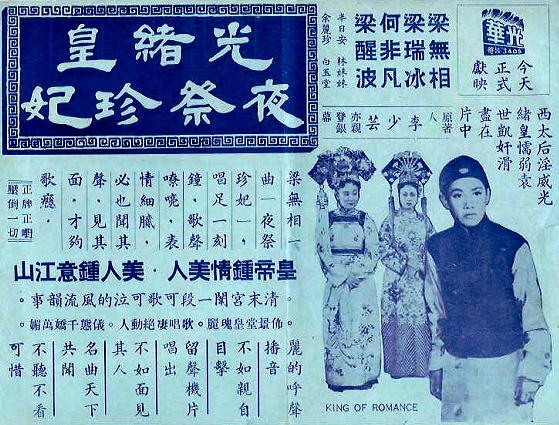 光華
今天
正式
獻映
梁無相
梁瑞冰
何非凡
梁醒波
半日安 林妹妹
余麗珍 白玉堂
光緒皇
夜祭珍妃
原著人李少芸亦親登銀幕
西太后淫威光
緒皇懦弱袁
世凱奸滑
盡在
片中
梁無相一
曲一夜祭
珍妃一,
唱足一刻
鐘,歌聲
嘹喨,表
情細膩,
必也聞其
聲,見其
面,才夠
歌癮
正牌正嘢
壓倒一切
皇帝鍾情美人·美人鍾意江山
。清末宮闈一段可歌可泣的風流韻事。
。佈景堂皇瑰麗。歌唱凄絕動人。儀態千嬌萬媚。
麗的呼聲
播音
不如親自
目擊
留聲機片
唱出
不如面見
其人
名曲天下
共聞
不聽不看
可惜
KING OF ROMANCE